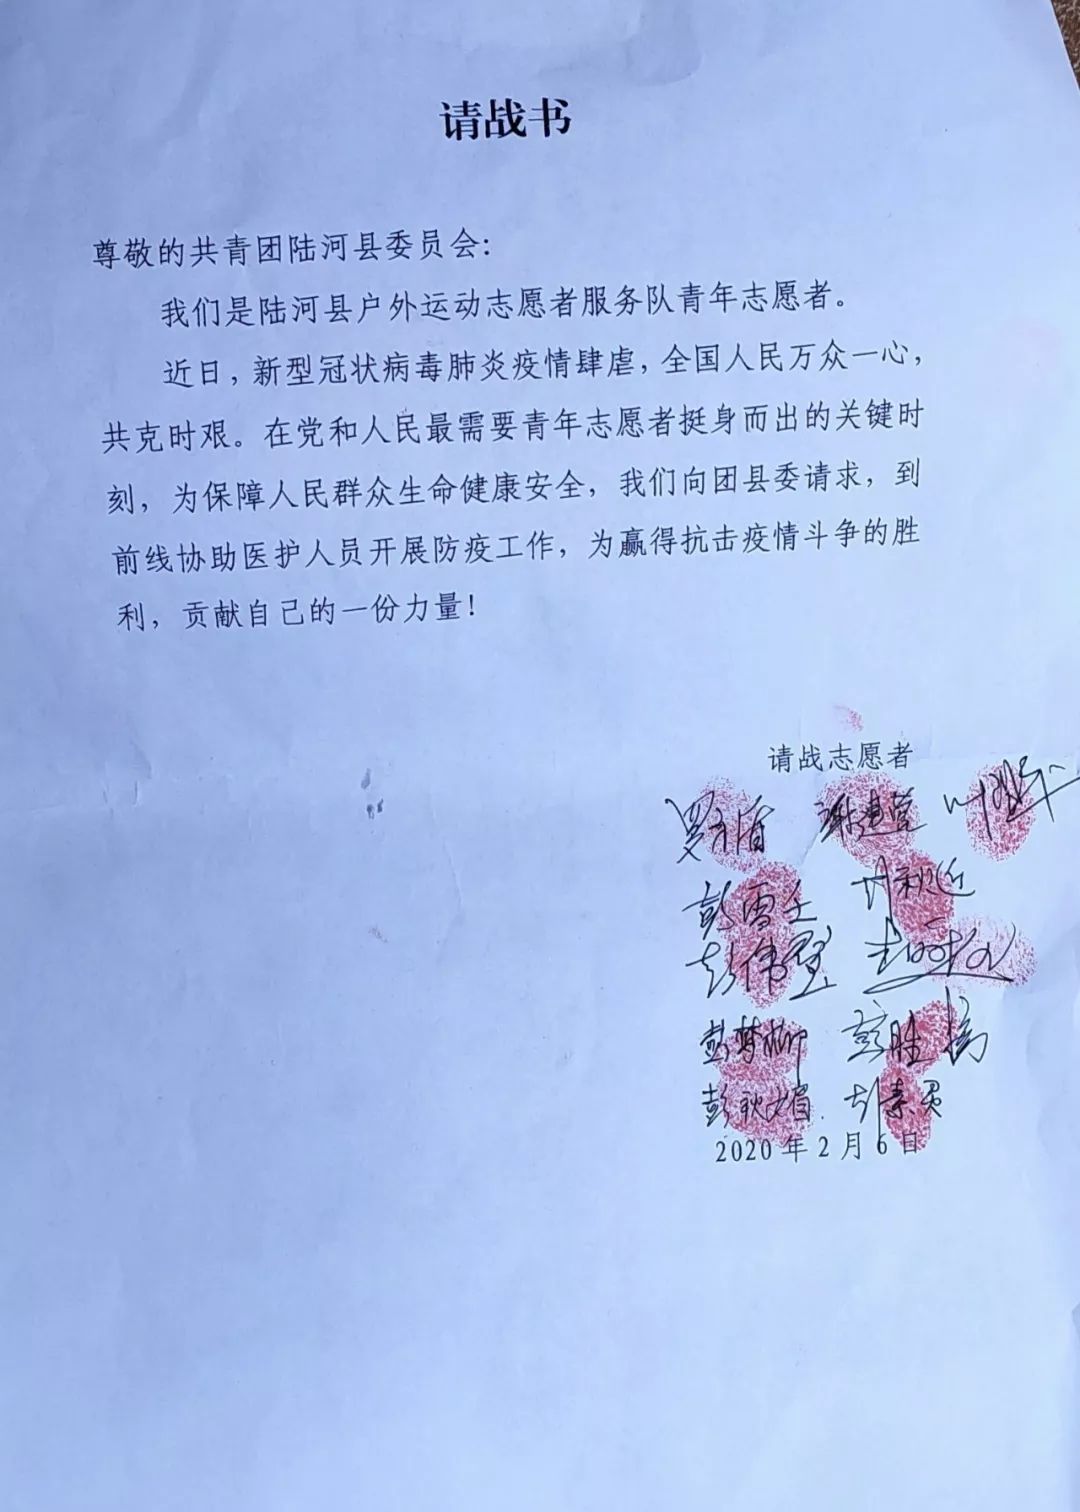 请战书
尊敬的共青团陆河县委员会:
我们是陆河县户外运动志愿者服务队青年志愿者。
近日,新型冠状病毒肺炎疫情肆虐,全国人民万众一心,
共克时艰。在党和人民最需要青年志愿者挺身而出的关键时
刻,为保障人民群众生命健康安全,我们向团县委请求,到
前线协助医护人员开展防疫工作,为赢得抗击疫情斗争的胜
利,贡献自己的一份力量!
请战志愿者
彭雪
彭伟
彭梦柳 彭胜
彭秋媚
2020年2月6日